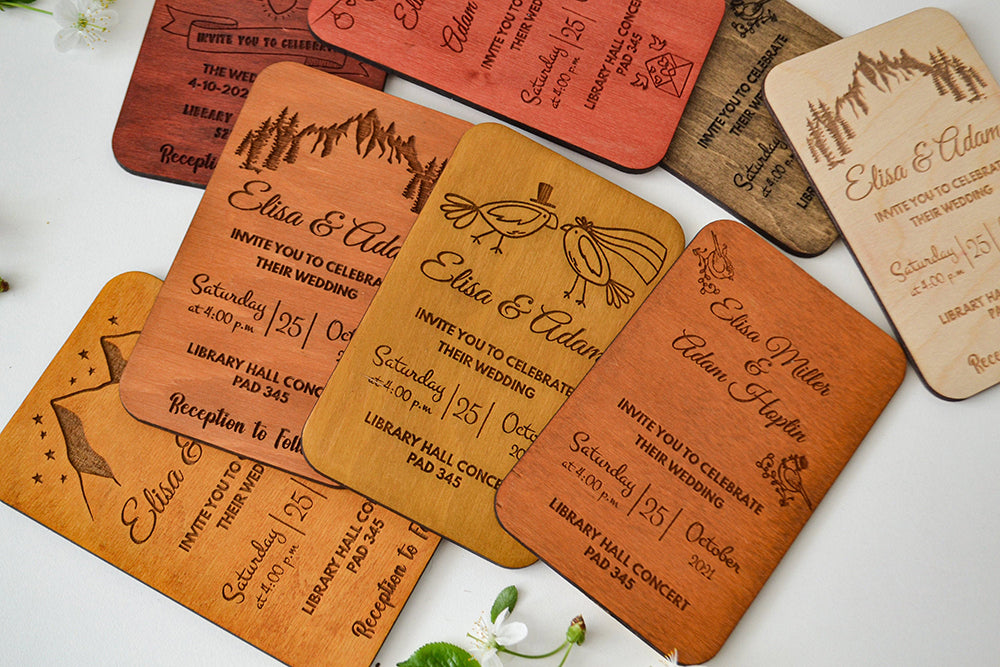 INVITE YOU TO CELEBRATE
THE WED
4-10-202
LIBRARY
Reception
Elisa
Adam
INVITE YOU TO CELEBRATE
THEIR WEDDING
Saturday 25
at 4:00 p.m
LIBRARY HALL CONCERT
PAD 345
INVITE YOU TO CELEBRATE
THEIR
Saturday
at 4:00 p.m
Elisa & Adam
INVITE YOU TO CELEBR
THEIR WEDDING
Saturday 25
at 4:00 p.m
LIBRARY HALL CON
PAD 345
Elisa & Ada
INVITE YOU TO CELEBRATE
THEIR WEDDING
Saturday 25 Octob
at 4:00 p.m
LIBRARY HALL CONC
PAD 345
Reception to Foll
Elisa & Adam
INVITE YOU TO CELEBRATE
THEIR WEDDING
Saturday 25 October
at 4:00 p.m 202
LIBRARY HALL CONCERT
PAD 345
Elisa Miller
&
Adam Hoplin
INVITE YOU TO CELEBRATE
THEIR WEDDING
Saturday 25 October
at 4:00 p.m 2021
LIBRARY HALL CONCERT
PAD 345
Elisa &
INVITE YOU TO
THEIR WED
Saturday 25
at 4:00 p.m
LIBRARY HALL CO
PAD 345
Reception to Fo